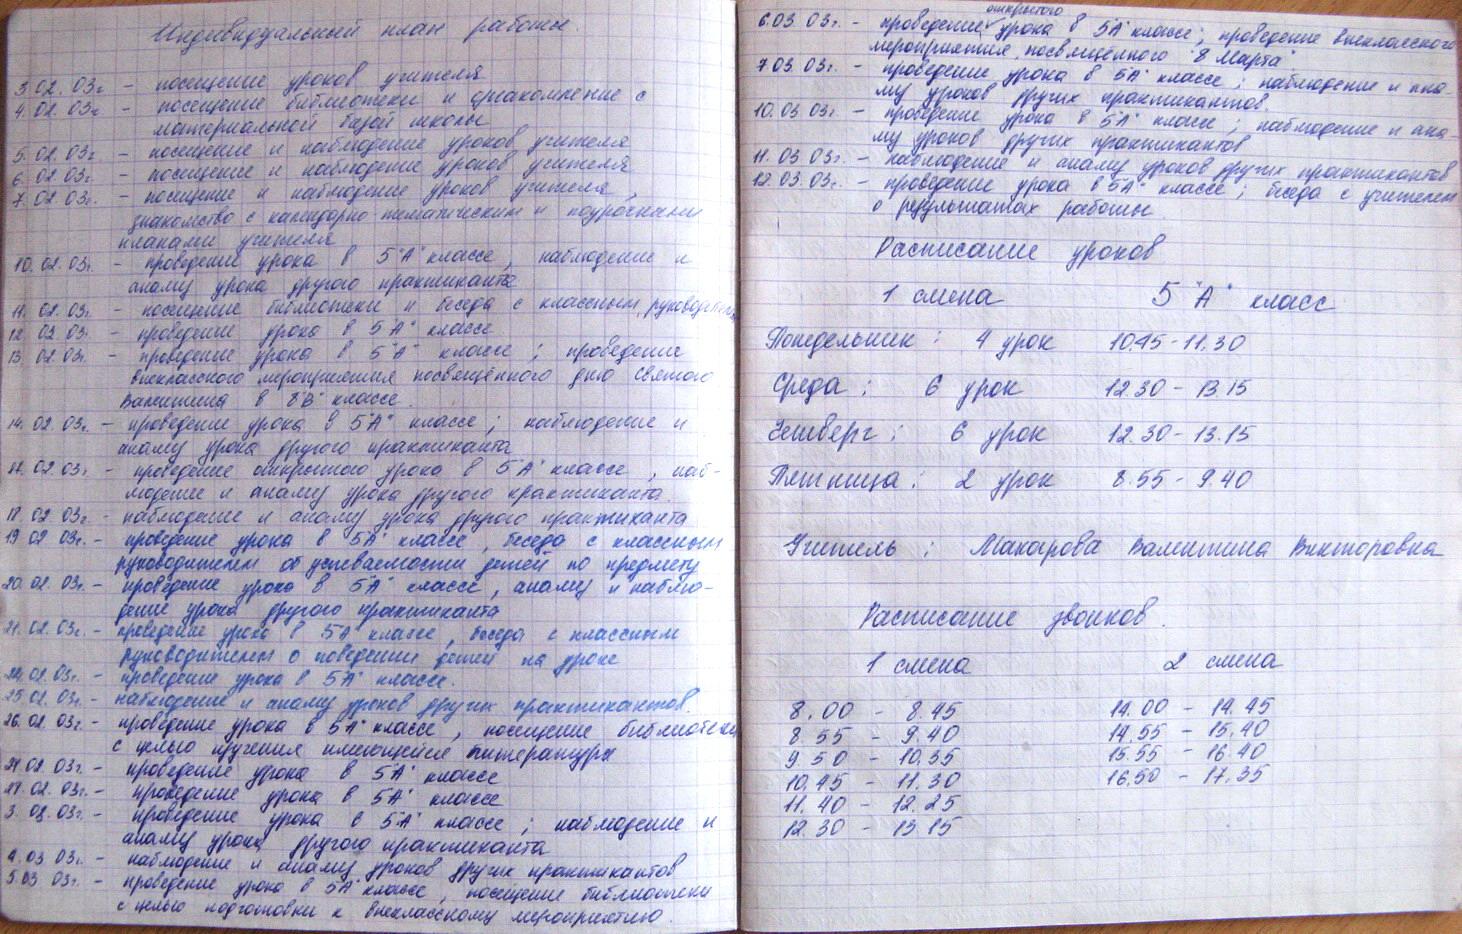 Индивидуальный план работы.
3.02.03г. - посещение уроков учителя
4.02.03г. - посещение библиотеки и ознакомление с
материальной базой школы
5.02.03г. - посещение и наблюдение уроков учителя
6.02.03г. - посещение и наблюдение уроков учителя
7.02.03г. - посещение и наблюдение уроков учителя,
знакомство с календарно тематическим и поурочными
планами учителя
10.02.03г. - проведение урока в 5"А" классе, наблюдение и
анализ урока другого практиканта
11.02.03г. - посещение библиотеки и беседа с классным руководителем
12.02.03г. - проведение урока в 5"А" классе
13.02.03г. - проведение урока в 5"А" классе; проведение
внеклассного мероприятия посвящённого дню святого
Валентина в 8"В" классе.
14.02.03г. - проведение урока в 5"А" классе; наблюдение и
анализ урока другого практиканта
02.03г. - проведение открытого урока в 5"А" классе, наб-
людение и анализ урока другого практиканта.
18.02.03г. - наблюдение и анализ урока другого практиканта
19.02.03г. - проведение урока в 5"А" классе, беседа с классным
руководителем об успеваемости детей по предмету
20.02.03г. - проведение урока в 5"А" классе, анализ и наблю-
дение урока другого практиканта
21.02.03г. - проведение урока в 5"А" классе, беседа с классным
руководителем о поведении детей на уроке
24.02.03г. - проведение урока в 5"А" классе.
25.02.03г. - наблюдение и анализ уроков других практикантов.
26.02.03г. - проведение урока в 5"А" классе, посещение библиотеки
с целью изучения имеющейся литературы
02.03г. - проведение урока в 5"А" классе
02.03г. - проведение урока в 5"А" классе
3.03.03г. - проведение урока в 5"А" классе; наблюдение и
анализ урока другого практиканта
4.03.03г. - наблюдение и анализ уроков других практикантов
5.03.03г. - проведение урока в 5"А" классе, посещение библиотеки
с целью подготовки к внеклассному мероприятию.
6.03.03г. - проведение открытого урока в 5"А" классе; проведение внеклассного
мероприятия, посвящённого 8 Марта.
7.03.03г. - проведение урока в 5"А" классе; наблюдение и ана-
лиз уроков других практикантов.
10.03.03г. - проведение урока в 5"А" классе; наблюдение и ана-
лиз уроков других практикантов
11.03.03г. - наблюдение и анализ уроков других практикантов
12.03.03г. - проведение урока в 5"А" классе; беседа с учителем
о результатах работы.
Расписание уроков
1 смена 5"А" класс
Понедельник: 4 урок 10.45-11.30
Среда: 6 урок 12.30-13.15
Четверг: 6 урок 12.30-13.15
Пятница: 2 урок 8.55-9.40
Учитель: Макарова Валентина Викторовна
Расписание звонков.
1 смена 2 смена
8.00 - 8.45 14.00 - 14.45
8.55 - 9.40 14.55 - 15.40
9.50 - 10.35 15.55 - 16.40
10.45 - 11.30 16.50 - 17.35
11.40 - 12.25
12.30 - 13.15